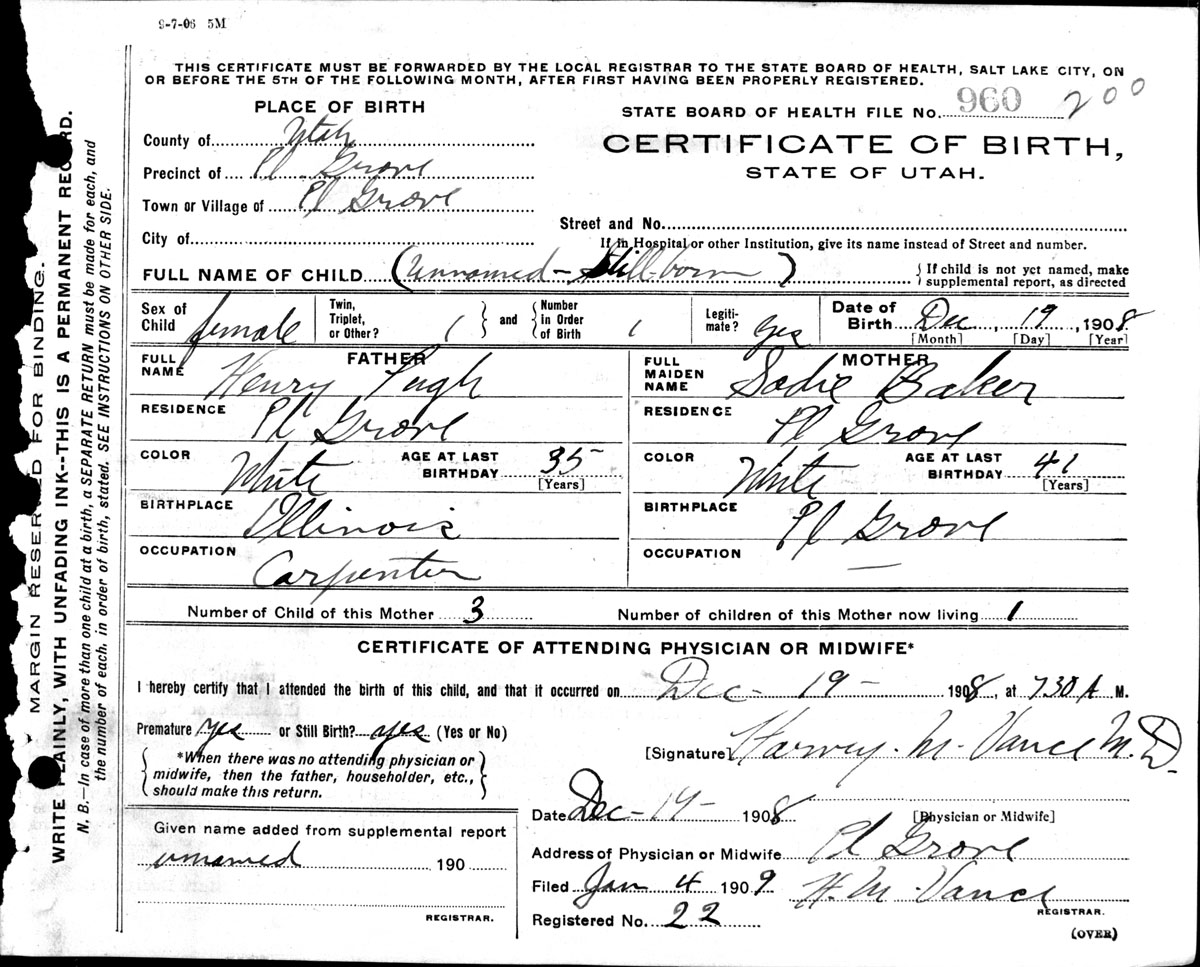 9-7-06 5M
THIS CERTIFICATE MUST BE FORWARDED BY THE LOCAL REGISTRAR TO THE STATE BOARD OF HEALTH, SALT LAKE CITY, ON
OR BEFORE THE 5TH OF THE FOLLOWING MONTH, AFTER FIRST HAVING BEEN PROPERLY REGISTERED.
PLACE OF BIRTH
STATE BOARD OF HEALTH FILE No. 960 200
County of Utah
CERTIFICATE OF BIRTH,
Precinct of Pl Grove
STATE OF UTAH.
Town or Village of Pl Grove
Street and No.
City of
If in Hospital or other Institution, give its name instead of Street and number.
FULL NAME OF CHILD (Unnamed - Still-born) { If child is not yet named, make
supplemental report, as directed
Sex of Child female Twin, Triplet, or Other? 1 and Number in Order of Birth 1 Legiti-mate? yes Date of Birth Dec, 19, 1908
[Month] [Day] [Year]
FATHER
FULL NAME Henry Pugh
MOTHER
FULL MAIDEN NAME Sadie Baker
RESIDENCE Pl Grove
RESIDENCE Pl Grove
COLOR White AGE AT LAST BIRTHDAY 35 [Years]
COLOR White AGE AT LAST BIRTHDAY 41 [Years]
BIRTHPLACE Illinois
BIRTHPLACE Pl Grove
OCCUPATION Carpenter
OCCUPATION —
Number of Child of this Mother 3 Number of children of this Mother now living 1
CERTIFICATE OF ATTENDING PHYSICIAN OR MIDWIFE*
I hereby certify that I attended the birth of this child, and that it occurred on Dec - 19 - 1908, at 730 A M.
Premature yes or Still Birth? yes (Yes or No)
[Signature] Harvey. M. Vance M.D.
*When there was no attending physician or
midwife, then the father, householder, etc.,
should make this return.
Date Dec - 19 - 1908
[Physician or Midwife]
Given name added from supplemental report
unnamed 190
REGISTRAR.
Address of Physician or Midwife Pl Grove
Filed Jan 4 1909 H. M. Vance
REGISTRAR.
Registered No. 22
(OVER)
MARGIN RESERVED FOR BINDING.
WRITE PLAINLY, WITH UNFADING INK--THIS IS A PERMANENT RECORD.
N. B.—In case of more than one child at a birth, a SEPARATE RETURN must be made for each, and
the number of each, in order of birth, stated. SEE INSTRUCTIONS ON OTHER SIDE.